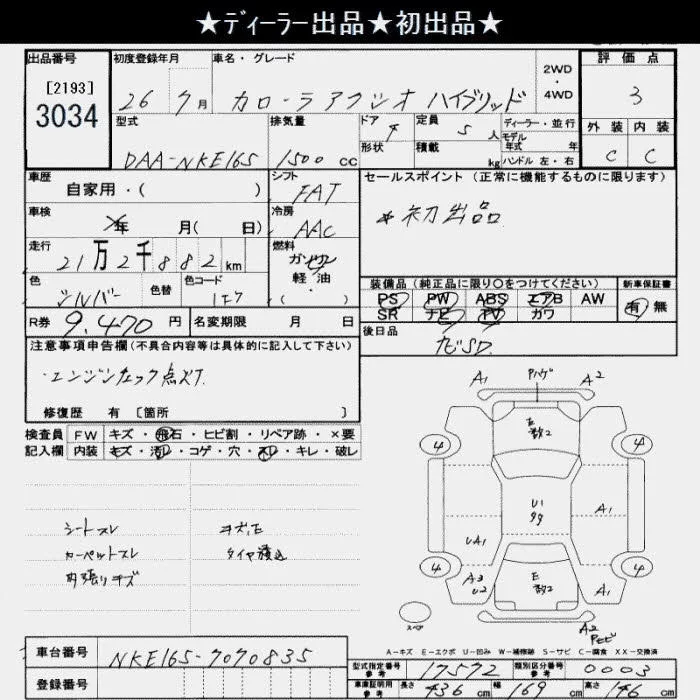 ★ディーラー出品★初出品★
出品番号 初度登録年月 車名・グレード 2WD・4WD 評価点
[2193]
3034
26 7月 カローラアクシオ ハイブリッド 3
型式 排気量 ドア 4 定員 5 人 ディーラー・並行 外装 内装
モデル年式 年
DAA-NKE165 1500 cc 形状 積載 kg ハンドル 左・右 C C
車歴 シフト セールスポイント (正常に機能するものに限ります)
自家用・( ) FAT
*初出品
車検 年 月( 日) 冷房 AAC
走行 燃料
21万2千882km ガソリン
軽油・( )
装備品 (純正品に限り○をつけてください) 新車保証書
色 色替 色コード
シルバー 1F7
PS PW ABS エアB AW 有 無
SR ナビ TV カワ
R券 9,470円 名変期限 月 日
後日品
ナビSD.
注意事項申告欄(不具合内容等は具体的に記入して下さい)
・エンジンチェック点灯.
修復歴 有 [箇所 ]
検査員 FW キズ・飛石・ヒビ割・リペア跡・×要
記入欄 内装 キズ・汚レ・コゲ・穴・スレ・キレ・破レ
A1 Pハゲ A2
E数2
4 4
U1
99 A1
UA1
4 4
A3 U2 E数2 A1
スペア
A2
シートスレ
カーペットスレ
内張りキズ
タイヤ積込
A-キズ E-エクボ U-凹み W-補修跡 S-サビ C-腐食 XX-交換済
車台番号 NKE165-7070835
登録番号
型式指定番号参考 17572 類別区分番号参考 0003
車庫証明用参考 長さ 436 cm 幅 169 cm 高さ 146 cm